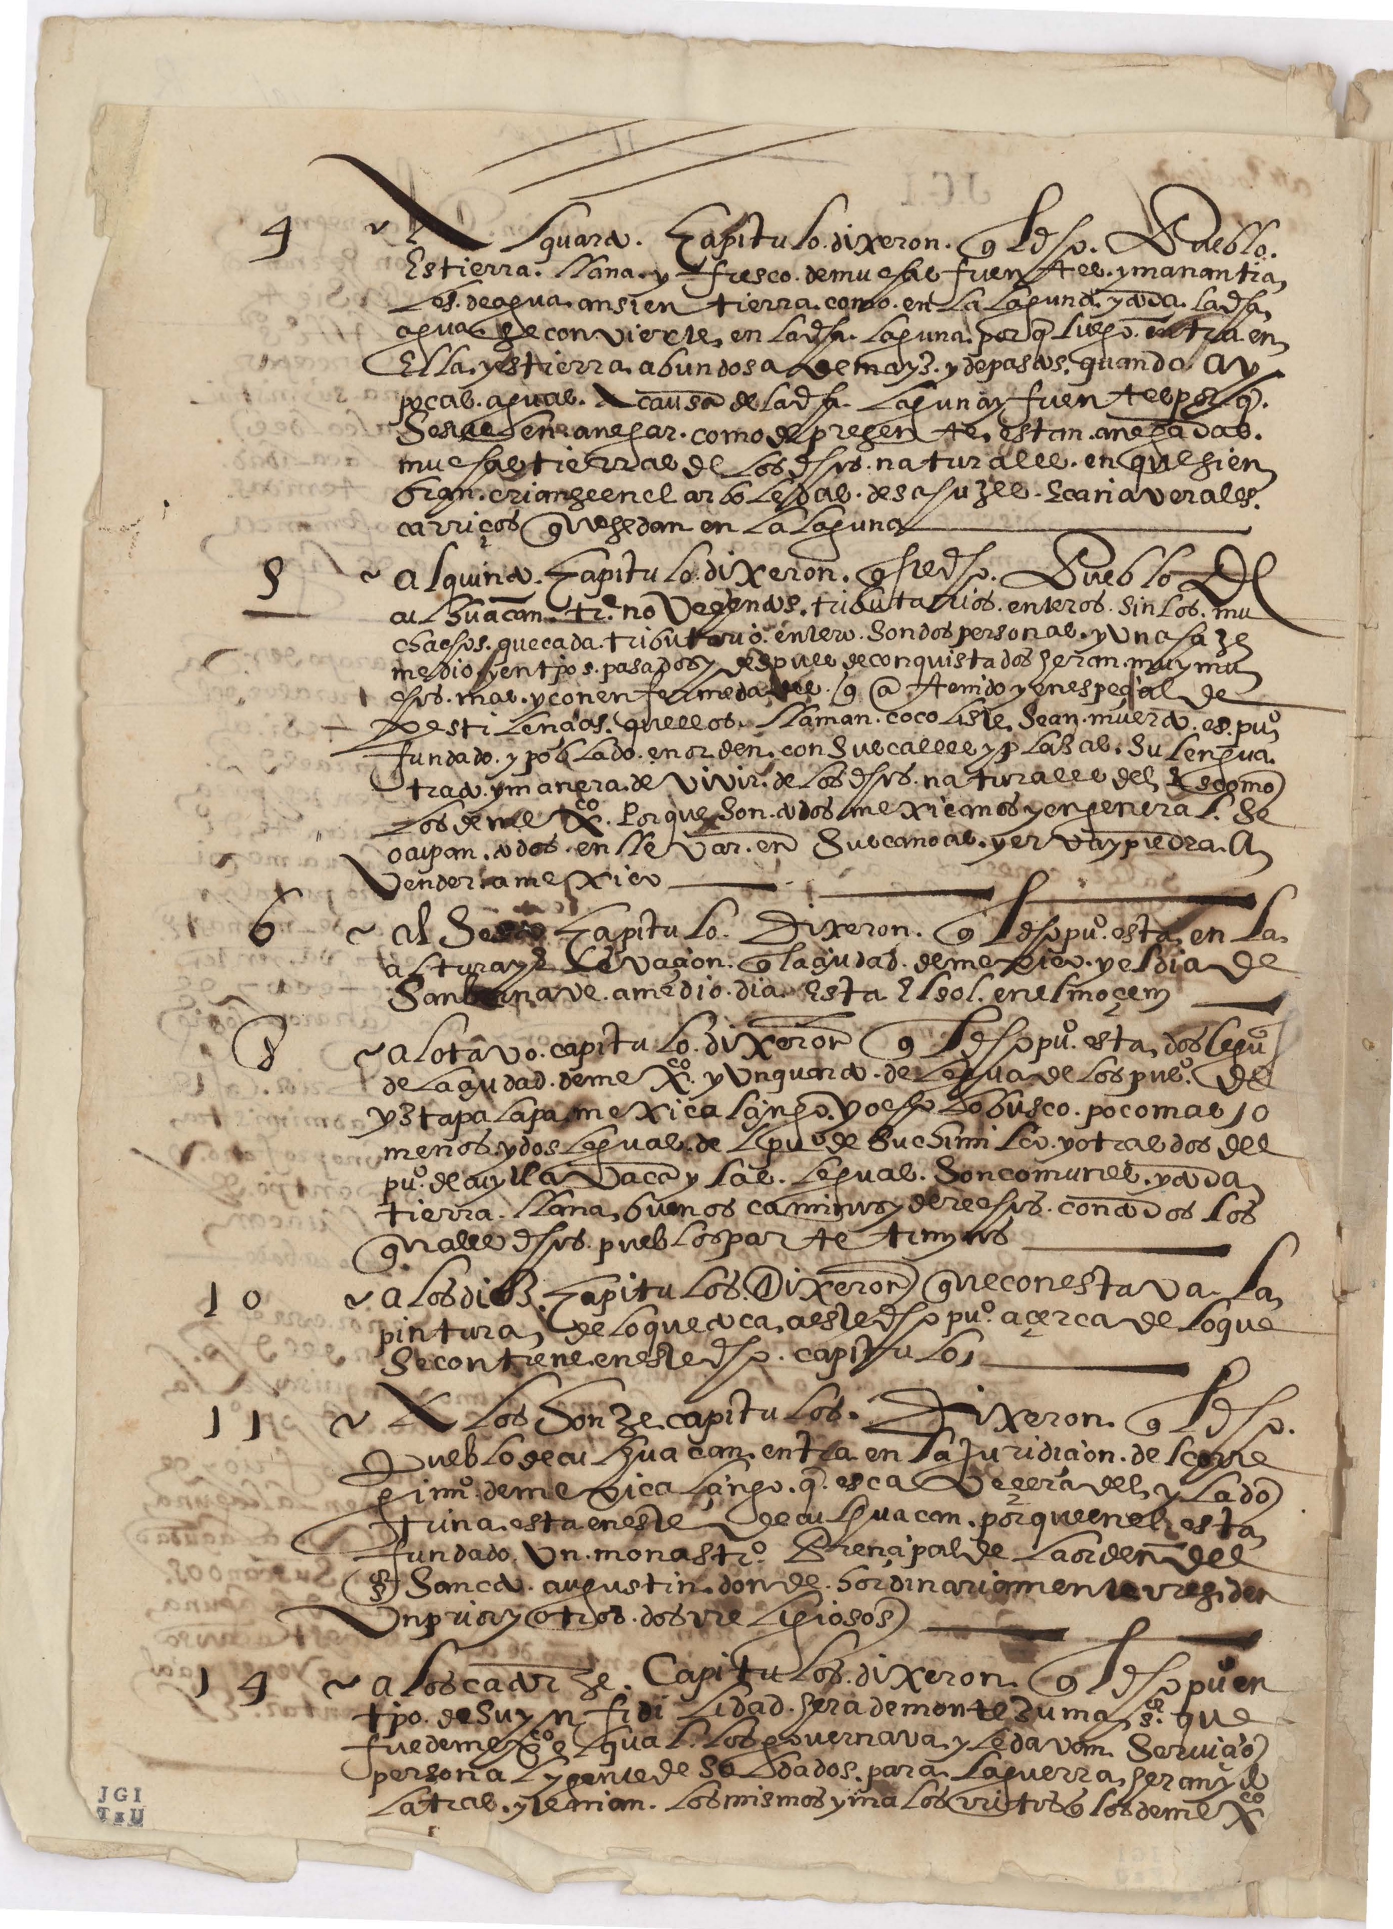 4 ~ Al quarto. Capitulo. dixeron. q̄ el dho. Pueblo.
Es tierra. llana. y fresco. de muchas fuentes. y manantia
les. de agua. ansi en tierra. como. en la laguna. y toda. la dha
agua. se convierte. en la dha. laguna. por q̄ luego. entra en
Ella. y es tierra. abundosa de mayz. y de pastos. quando. ay
pocas. aguas. A causa de la dha. laguna y fuentes por. q̄.
se suelen anegar. como de presente. estan. anegadas.
muchas tierras de los dhos. naturales. en que sien
bran. crianse en el arboledas. de sauzes. E cañaverales.
carriços que se dan en la laguna
5 ~ al quinto. Capitulo. dixeron. q̄ este dho. Pueblo De
culhuacan. tr.º noveçientos. tributarios. enteros. sin los. mu
chachos. que cada. tributario. entero. son dos personas. y una faze
medio y en tpos. pasados y despues de conquistados heran. muy mu
chos. mas. y con enfermedades. q̄ a tenido y en espeçial de
pestilençias. que ellos. llaman. cocoliste. sean. muerto. es. pu.º
fundado. y poblado. en orden. con sus calles y plasas. su lengua.
trato. y manera. de vivir. de los dhos. naturales del. Es como
los de mex.co. Porque son. todos mexicanos y en general. se
ocupan. todos. en llevar. en sus canoas. yerva y piedra. A
Vender. a mexico
6 ~ al Sesto. Capitulo. Dixeron. q̄ el dho pu.º esta en la
altura y elevaçion. q̄ la çiudad. de mexico. y el dia de
San bernave. a medio. dia. Esta El sol. en el moçem
8 ~ al otavo. capitulo. dixeron q̄ el dho pu.º esta. dos leguas
de la çiudad. de mex.co. y un quarto. de legua de los pue.º De
yztapalapa, mexicalçingo. y ochilobusco. poco mas 10
menos. y dos leguas. de el pu.º de suchimilco. y otras dos del
pu.º de cuytlavaca y las. leguas. son comunes. y toda
tierra. llana. buenos caminos y derechos. con todos los
quales dhos. pueblos parte terminos
10 ~ a los diez. Capitulos. Dixeron que con esta va. la
pintura. de lo que toca. a este dho pu.º açerca de lo que
se contiene. en este dho. capitulo
11 ~ A los honze capitulos. Dixeron. q̄ el dho.
Pueblo de culhuacan. entra en la juridiçion. de l corre
gimi.º de mexicalçingo. q̄. es caveçera del, y la do
trina. esta en este de culhuacan. porque en el esta
fundado. un. monast.rº Prençipal de la orden del
Sancto. augustin. donde. hordinariamente rresiden
Un prior y otros. dos rreligiosos
14 ~ a los catorze. Capitulos. dixeron q̄ el dho pu.º en
tpo. de su ynfidilidad. hera de montesuma, s.or que
fue de mex.co el qual. los governava. y le davan. Serviçio
personal y gente de soldados. para. la guerra. heran y do
latras. y tenian. los mismos y malos rritos q̄ los de mex.co
JGI
TxU